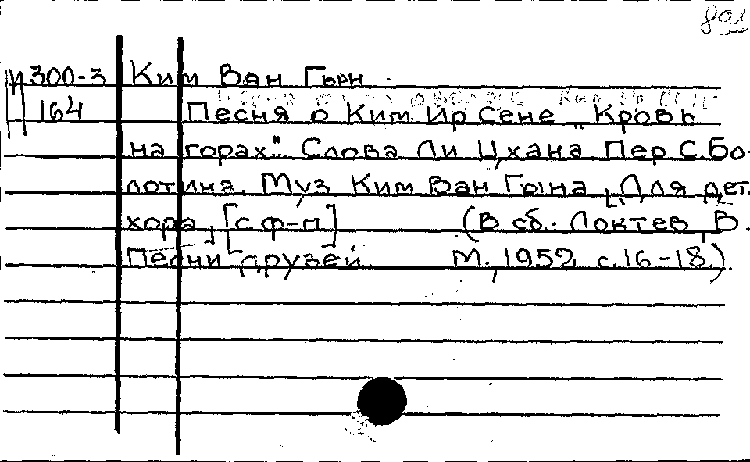 801
М 300-3 Ким Ван Гын.
164 Песня о Ким Ир Сене „Кровь
на горах". Слова Ли Цхана. Пер. С. Бо-
лотина. Муз. Ким Ван Гына. [Для дет.
хора, [с ф-п] (В сб.: Локтев, В.
Песни друзей. М., 1952, с. 16-18.)